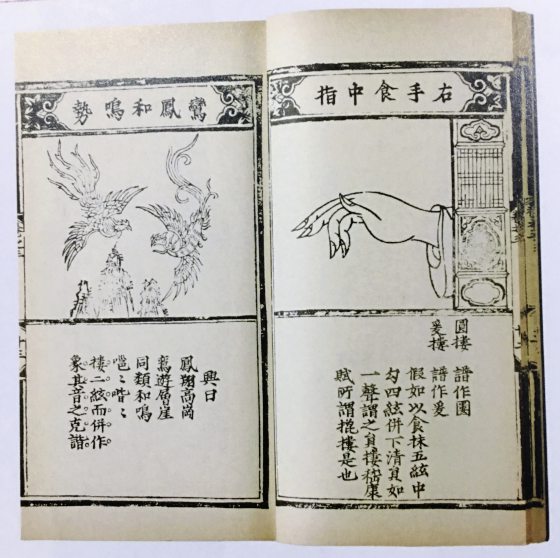 右手食中指
圓摟 譜作圓
爰摟 譜作爰
假如以食抹五絃中
勾四絃併下清員如
一聲謂之員摟嵇康
賦所謂摟是也
鸞鳳和鳴勢
興曰
鳳翔高崗
鸞遊層崖
同類和鳴
嗈〻喈〻
摟二絃而併作
象其音之克諧